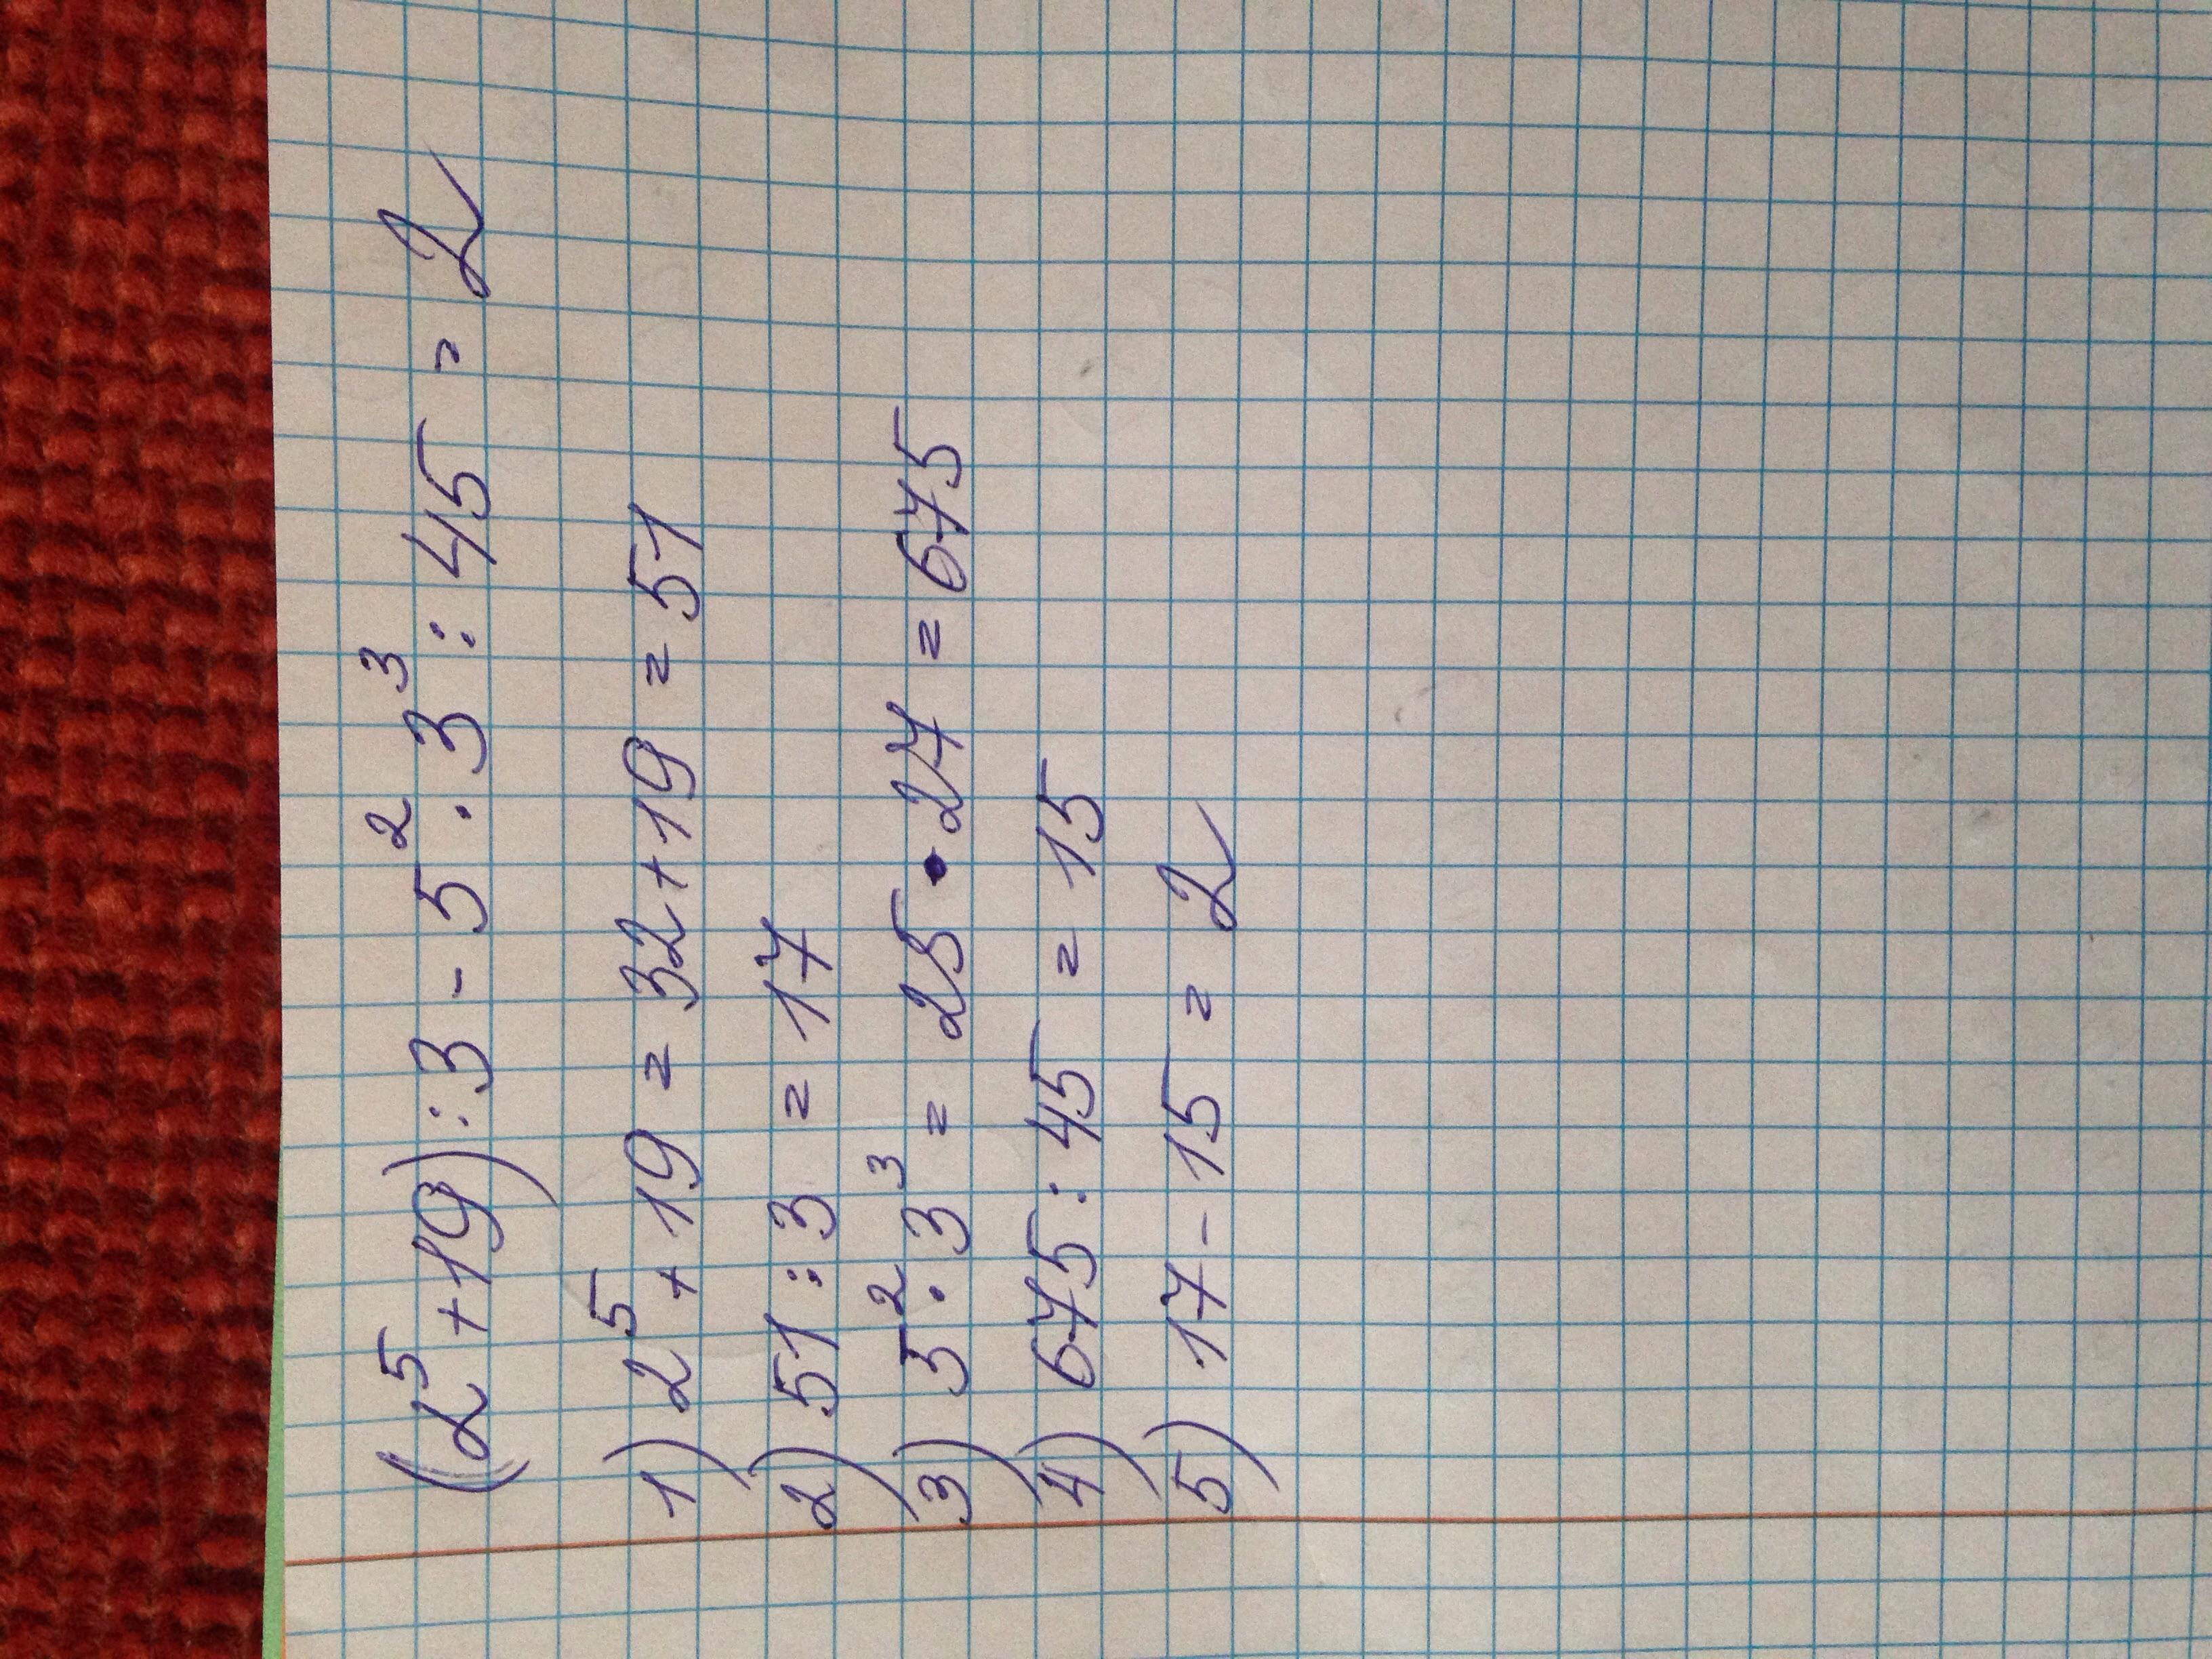 (2⁵+19):3-5²·3³:45=2
1) 2⁵+19=32+19=51
2) 51:3=17
3) 5²·3³=25·27=675
4) 675:45=15
5) 17-15=2